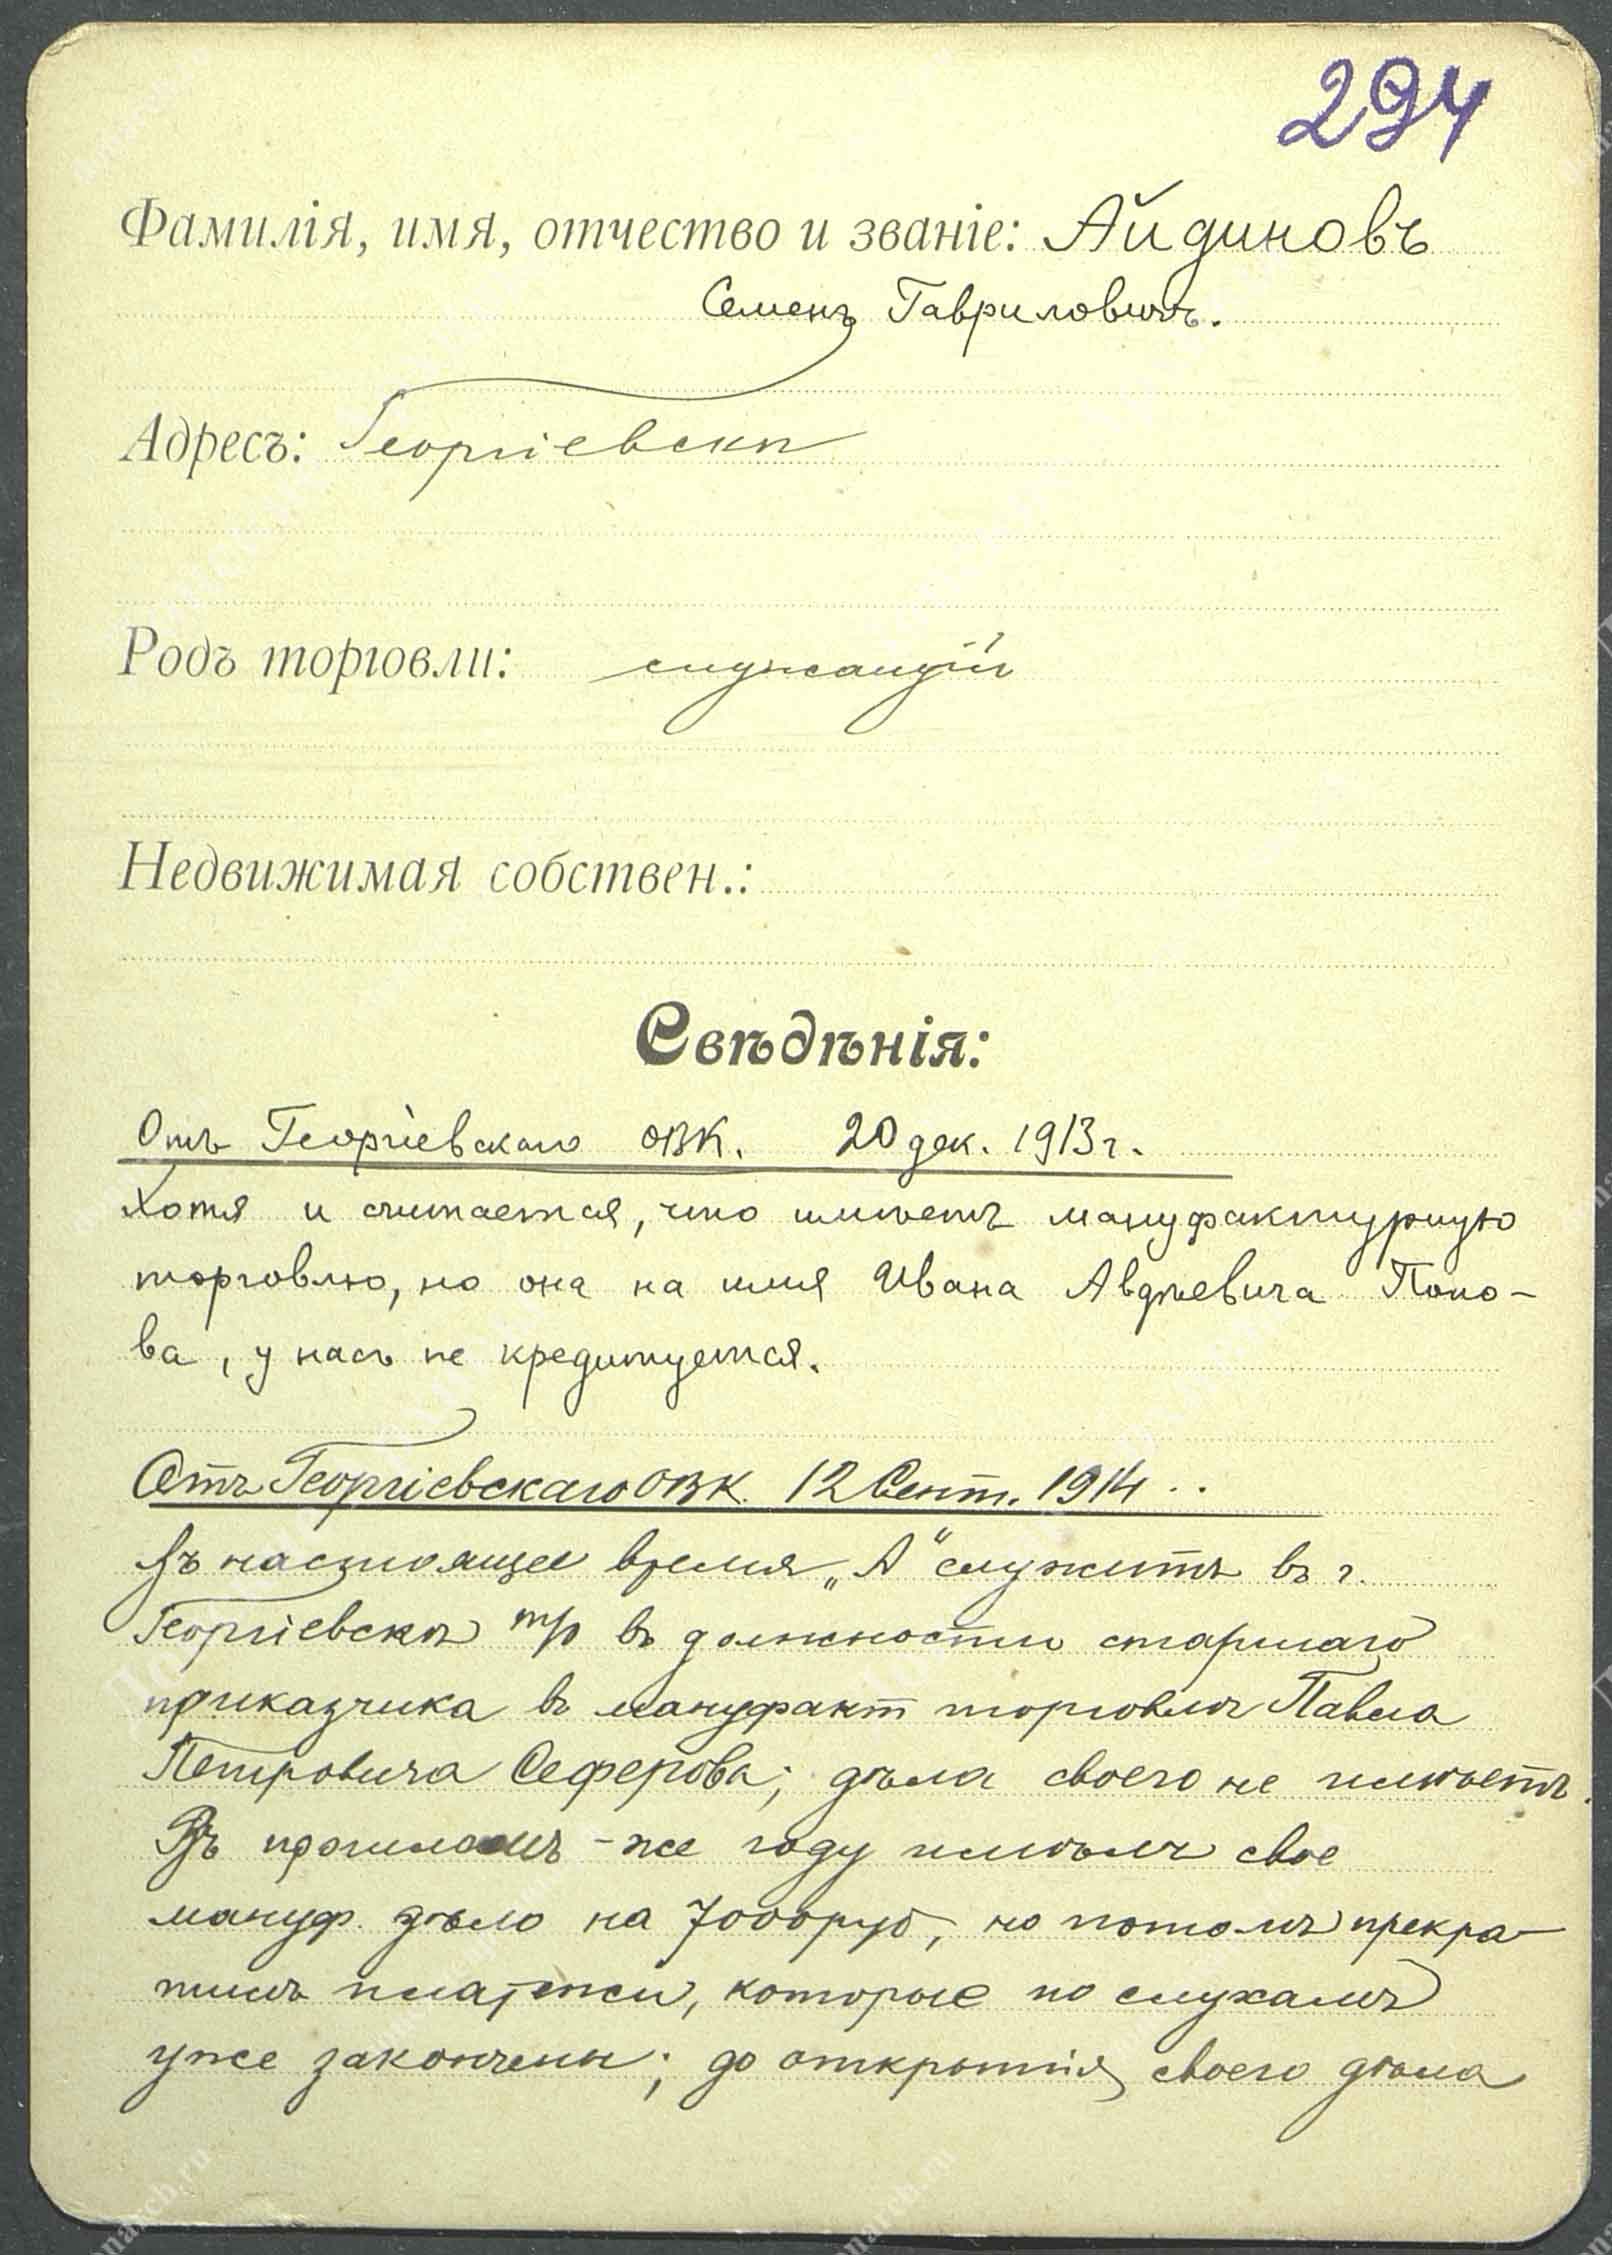 294
Фамилія, имя, отчество и званіе: Айдиновъ
Семенъ Гавриловичъ.
Адресъ: Георгіевскъ
Родъ торговли: служащій
Недвижимая собствен.:
Свѣдѣнія:
Отъ Георгіевскаго ОВК. 20 дек. 1913 г.
Хотя и считается, что имѣетъ мануфактурную
торговлю, но она на имя Ивана Авдѣевича Попо-
ва, у насъ не кредитуется.
Отъ Георгіевскаго ОВК. 12 Сент. 1914 ..
Въ настоящее время „А“ служитъ въ г.
Георгіевскѣ въ должности старшаго
приказчика въ мануфакт торговлѣ Павла
Петровича Сеферова; дѣла своего не имѣетъ.
Въ прошломъ-же году имѣлъ свое
мануф. дѣло на 7000 руб, но потомъ прекра-
тилъ платежи, которые по слухамъ
уже закончены; до открытія своего дѣла